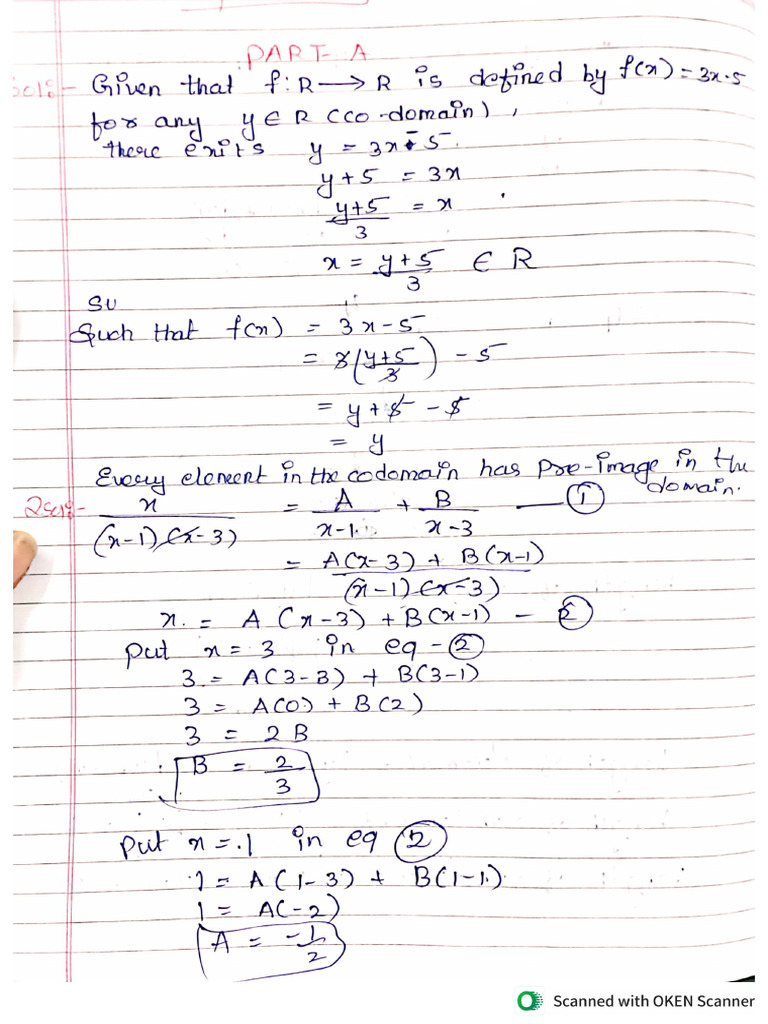 PART-A
Sol:- Given that f: R → R is defined by f(x) = 3x-5
for any y ∈ R (co-domain),
there exits y = 3x - 5.
y + 5 = 3x
y+5/3 = x
x = y+5/3 ∈ R
SU
Such that f(x) = 3x - 5
= 3(y+5/3) - 5
= y + 5 - 5
= y
Every element in the codomain has pre-image in the domain.
2sol:- x/(x-1)(x-3) = A/x-1 + B/x-3 — ①
= A(x-3) + B(x-1)/(x-1)(x-3)
x = A(x-3) + B(x-1) - ②
put x = 3 in eq - ②
3 = A(3-3) + B(3-1)
3 = A(0) + B(2)
3 = 2B
B = 2/3
put x = 1 in eq ②
1 = A(1-3) + B(1-1)
1 = A(-2)
A = -1/2
Scanned with OKEN Scanner